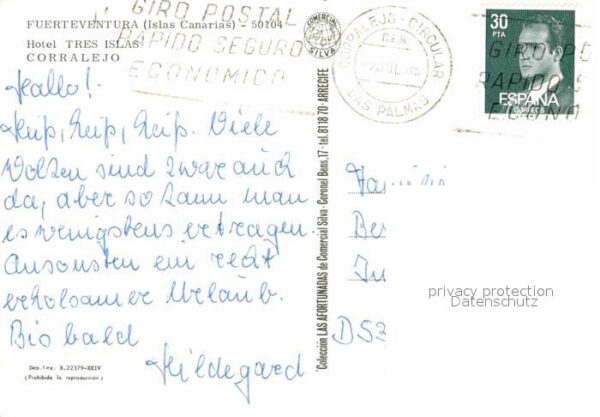 FUERTEVENTURA (Islas Canarias) - 50104
Hotel TRES ISLAS
CORRALEJO
GIRO POSTAL
RAPIDO SEGURO
ECONOMICO
COMERCIAL
SILVA
CORRALEJO - CIRCULAR
LAS PALMAS
30
PTA
ESPAÑA
CORREOS
GIRO PO
RAPIDO S
ECONO
Hallo!
Heiß, heiß, heiß. Viele
Wolken sind zwar auch
da, aber so kann man
es wenigstens ertragen.
Ansonsten ein recht
erholsamer Urlaub.
Bis bald
Hildegard
Colección LAS AFORTUNADAS de Comercial Silva - Coronel Bens, 17 - tel. 81 18 70 - ARRECIFE
Famili
Be
privacy protection
Datenschutz
Dep. Leg. B. 22379-XXIV
(Prohibida la reproducción)